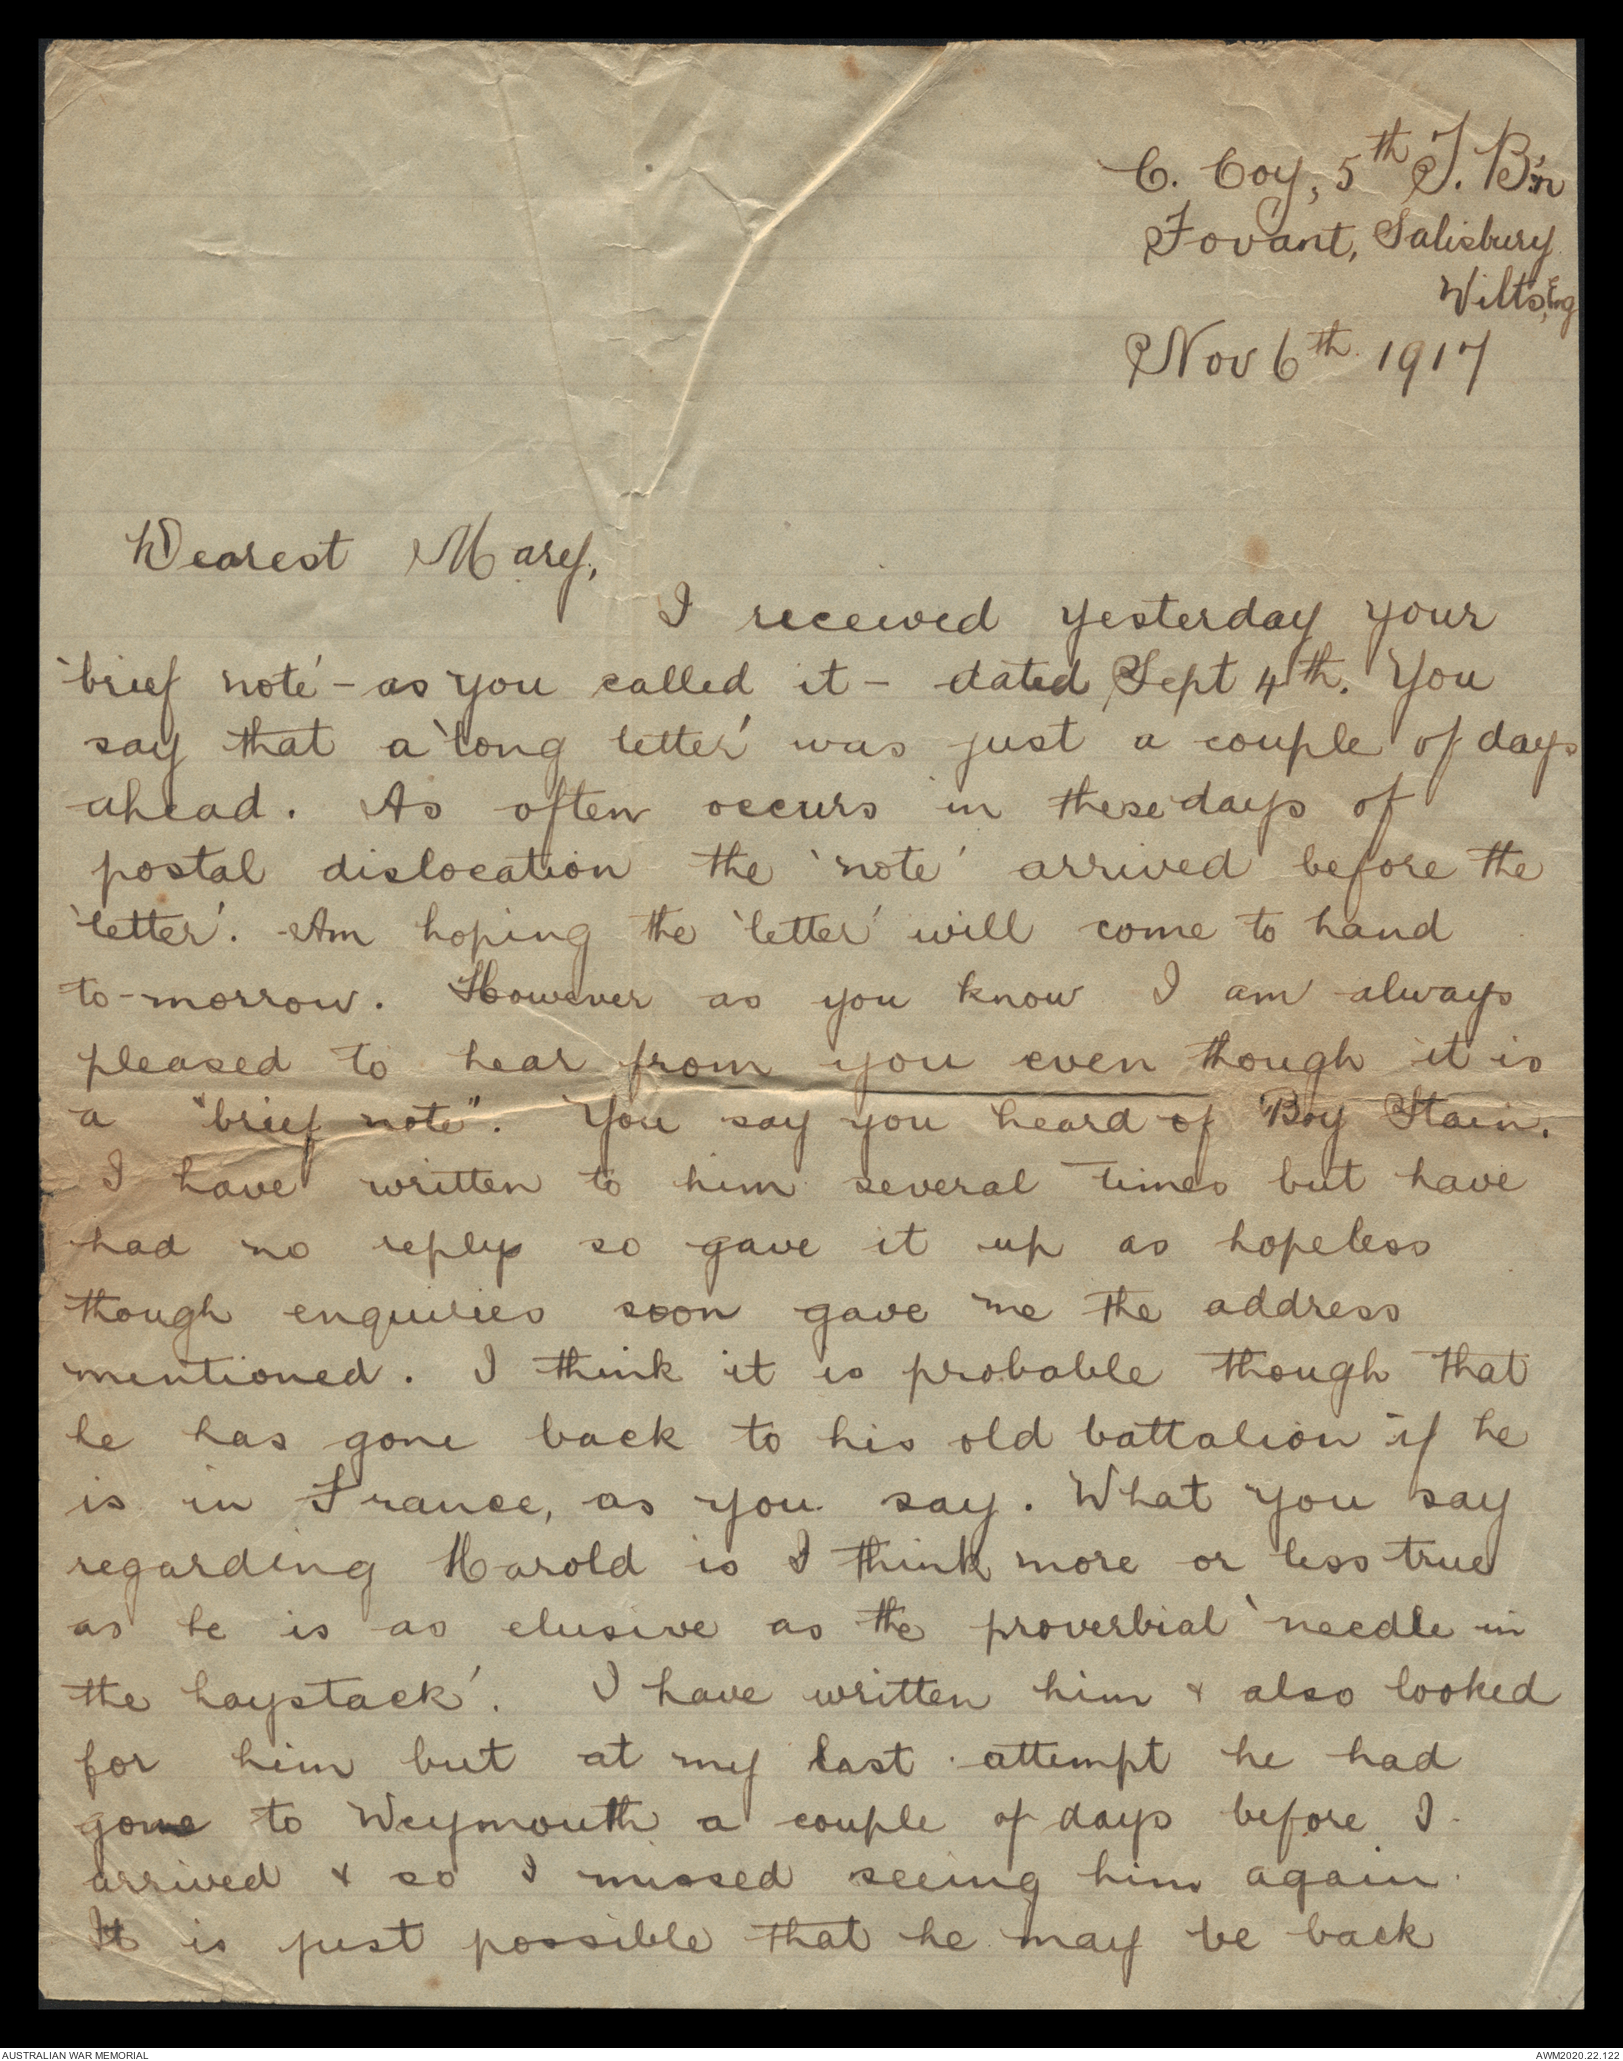 C. Coy, 5th T. B'n
Fovant, Salisbury
Wilts, Eng
Nov 6th 1917
Dearest Mary,
I received yesterday your
'brief note' - as you called it - dated Sept 4th. You
say that a 'long letter' was just a couple of days
ahead. As often occurs in these days of
postal dislocation the 'note' arrived before the
'letter'. Am hoping the 'letter' will come to hand
to-morrow. However as you know I am always
pleased to hear from you even though it is
a "brief note". You say you heard of Boy Stain.
I have written to him several times but have
had no reply so gave it up as hopeless
though enquiries soon gave me the address
mentioned. I think it is probable though that
he has gone back to his old battalion if he
is in France, as you say. What you say
regarding Harold is I think more or less true
as he is as elusive as the proverbial 'needle in
the haystack'. I have written him & also looked
for him but at my last attempt he had
gone to Weymouth a couple of days before I
arrived & so I missed seeing him again.
It is just possible that he may be back
AUSTRALIAN WAR MEMORIAL
AWM2020.22.122